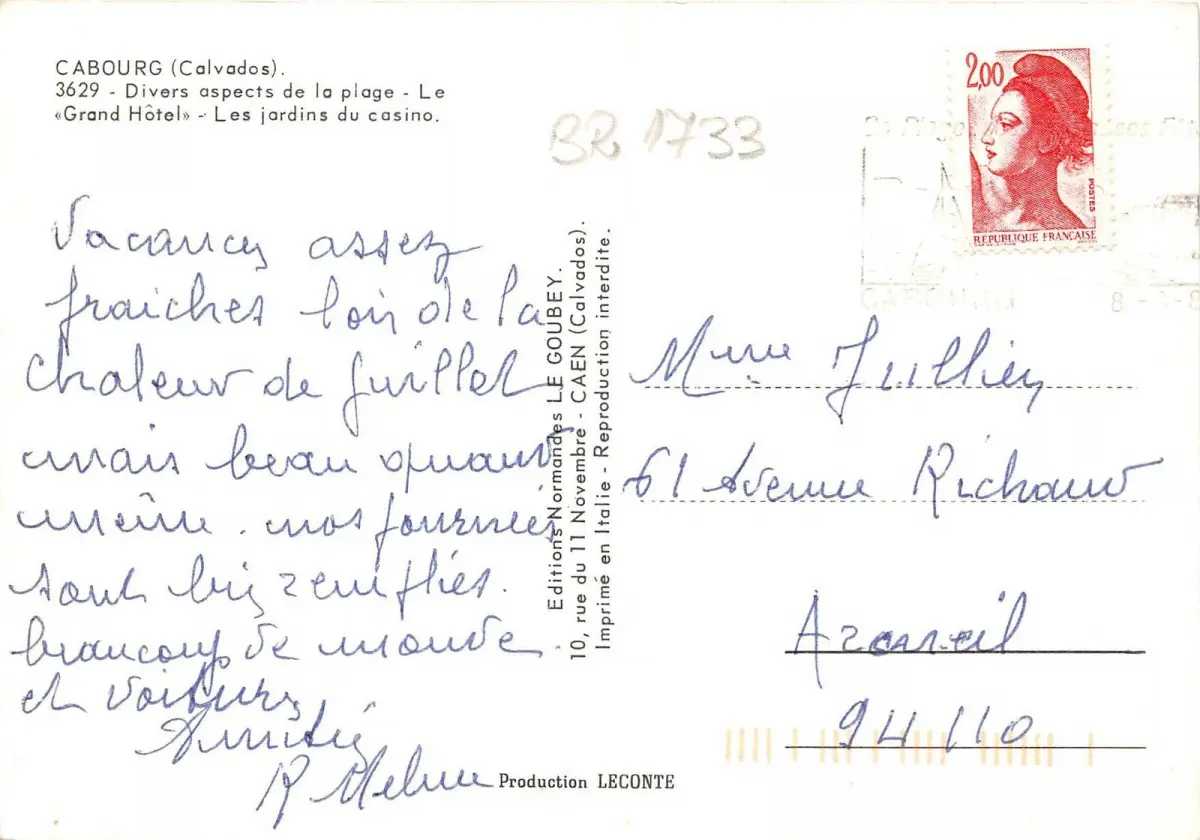 CABOURG (Calvados).
3629 - Divers aspects de la plage - Le
«Grand Hôtel» - Les jardins du casino.
BR 1733
2,00
POSTES
REPUBLIQUE FRANÇAISE
CABOURG
Vacances assez
fraiches loin de la
chaleur de Juillet
mais beau quand
même. nos journées
sont bien remplies.
beaucoup de monde
et voitures
Amitiés
R
Editions Normandes LE GOUBEY.
10, rue du 11 Novembre - CAEN (Calvados).
Imprimé en Italie - Reproduction interdite.
Mme Jullien
61 Avenue Richaud
Arcueil
94110
Production LECONTE